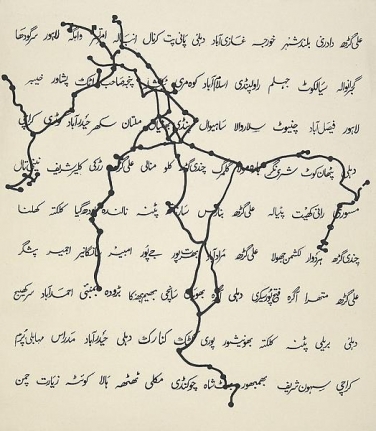 علی گڑھ دادری بلندشہر خورجہ غازی آباد دہلی پانی پت کرنال انبالہ امرتسر واہگہ لاہور سرگودھا
گوجرانوالہ سیالکوٹ جہلم راولپنڈی اسلام آباد کوہ مری پنجہ صاحب اٹک پشاور خیبر
لاہور فیصل آباد چنیوٹ ساہیوال ملتان سکھر حیدرآباد کراچی
دہلی پٹھان کوٹ گلمرگ چندی گڑھ کلو منالی علی گڑھ رڑکی کلیر شریف نینی تال
مسوری رانی کھیت پٹیالہ علی گڑھ بنارس پٹنہ نالندہ بودھ گیا کلکتہ کھلنا
چندی گڑھ ہردوار لکشمن جھولا علی گڑھ مرادآباد بھرت پور جے پور امبیر سانگانیر اجمیر پشکر
علی گڑھ متھرا آگرہ فتح پور سیکری دہلی آگرہ بھوپال سانچی بھیم بھٹکا بڑودہ بمبئی احمدآباد سرکھیج
دہلی بریلی پٹنہ کلکتہ بھونیشور پوری کٹک کنارک دہلی حیدرآباد مدراس مہابلی پرم
کراچی سیہون شریف بھمبھور بٹ شاہ چوکنڈی مکلی ٹھٹھہ ہالا کوئٹہ زیارت چمن